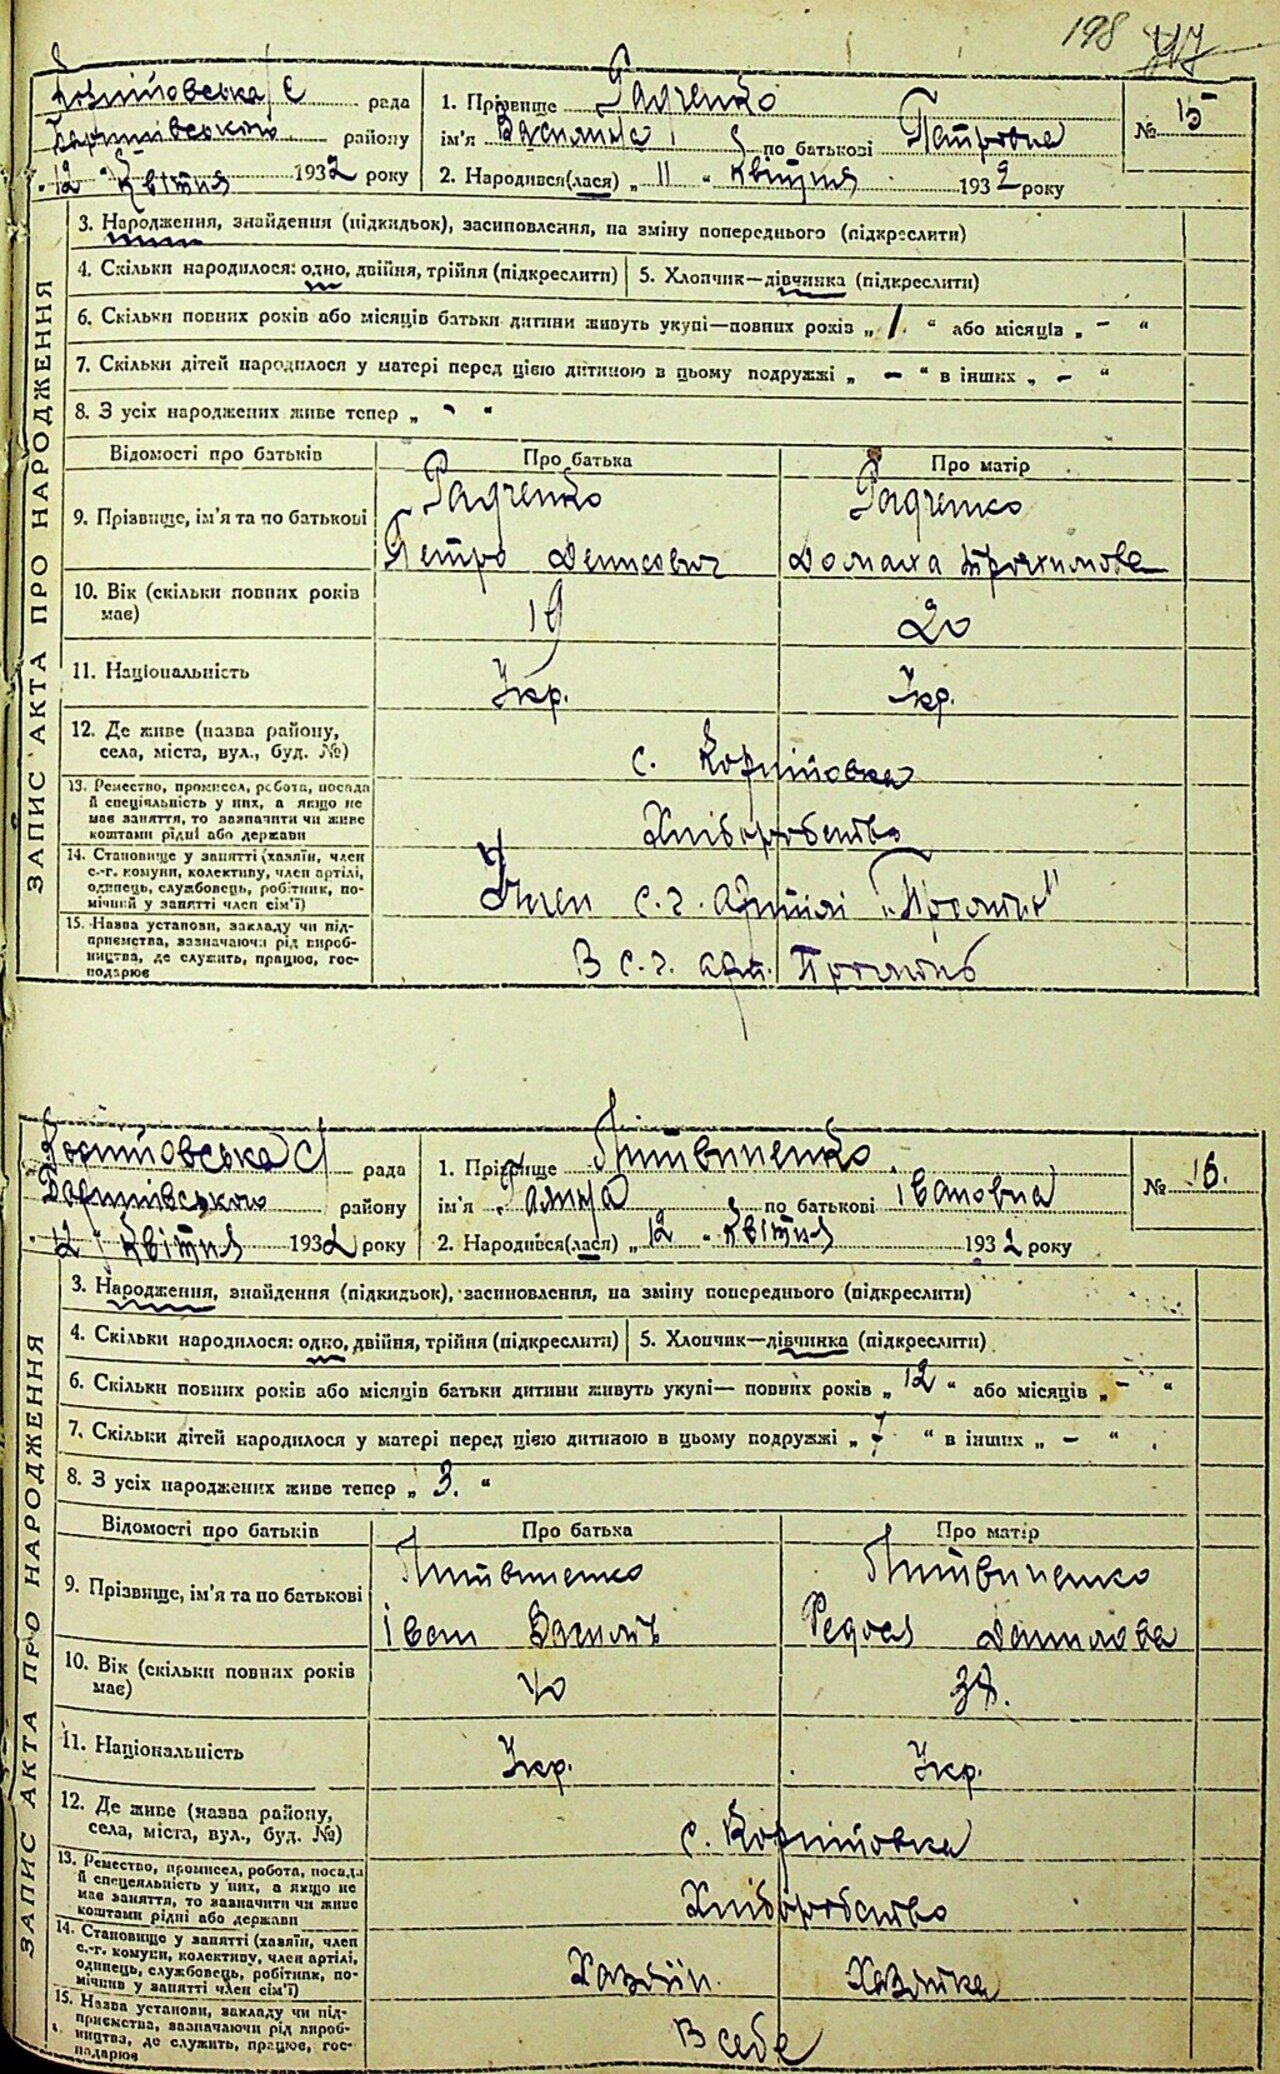 198
рада
району
12 Квітня 1932 року
1. Прізвище Радченко
ім'я Василина по батькові Петровна
2. Народився(лася) „ 11 “ Квітня 1932 року
№ 15
ЗАПИС АКТА ПРО НАРОДЖЕННЯ
3. Народження, знайдення (підкидьок), засиновлення, на зміну попереднього (підкреслити)
4. Скільки народилося: одно, двійня, трійня (підкреслити) 5. Хлопчик—дівчинка (підкреслити)
6. Скільки повних років або місяців батьки дитини живуть укупі—повних років „ 1. “ або місяців „ - “
7. Скільки дітей народилося у матері перед цією дитиною в цьому подружжі „ - “ в інших „ - “
8. З усіх народжених живе тепер „ - “
Відомості про батьків Про батька Про матір
9. Прізвище, ім'я та по батькові
Радченко Радченко
Петро Денисович Домаха Трохимова
10. Вік (скільки повних років
має)
19 20
11. Національність Укр. Укр.
12. Де живе (назва району,
села, міста, вул., буд. №)
с.
13. Ремество, промисел, робота, посада
й спеціяльність у них, а якщо не
має заняття, то зазначити чи живе
коштами рідні або держави
Хліборобство
14. Становище у занятті (хазяїн, член
с.-г. комуни, колективу, член артілі,
одинець, службовець, робітник, по-
мічний у занятті член сім'ї)
Член с.г. артілі „Промінь"
15. Назва установи, закладу чи під-
приємства, зазначаючи рід вироб-
ництва, де служить, працює, гос-
подарює
В с.г. арт. Промінь
рада
району
12 Квітня 1932 року
1. Прізвище Литвиненко
ім'я Галина по батькові Івановна
2. Народився(лася) „ 12 “ Квітня 1932 року
№ 16.
ЗАПИС АКТА ПРО НАРОДЖЕННЯ
3. Народження, знайдення (підкидьок), засиновлення, на зміну попереднього (підкреслити)
4. Скільки народилося: одно, двійня, трійня (підкреслити) 5. Хлопчик—дівчинка (підкреслити)
6. Скільки повних років або місяців батьки дитини живуть укупі— повних років „ 12 “ або місяців „ - “
7. Скільки дітей народилося у матері перед цією дитиною в цьому подружжі „ “ в інших „ - “
8. З усіх народжених живе тепер „ 3. “
Відомості про батьків Про батька Про матір
9. Прізвище, ім'я та по батькові
Литвиненко Литвиненко
Іван Данилова
10. Вік (скільки повних років
має)
40
11. Національність Укр. Укр.
12. Де живе (назва району,
села, міста, вул., буд. №)
с.
13. Ремество, промисел, робота, посада
й спецеяльність у них, а якщо не
має заняття, то зазначити чи живе
коштами рідні або держави
Хліборобство
14. Становищо у занятті (хазяїн, член
с.-г. комуни, колективу, член артілі,
одинець, службовець, робітник, по-
мічнив у занятті член сім'ї)
Хазяїн. Хазяйка
15. Назва установи, закладу чи під-
приємства, зазначаючи рід вироб-
ництва, де служить, працює, гос-
подарює
В себе